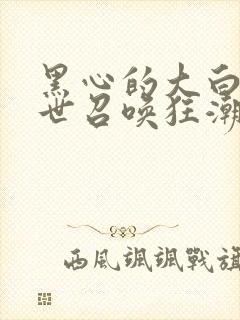 黑心的大白
世召唤狂潮
西风飒飒戰旗